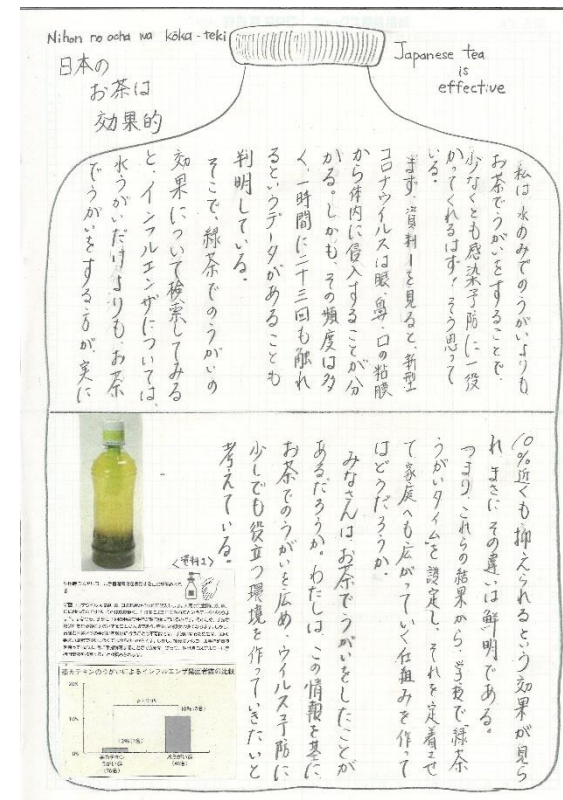 Nihon no ocha wa kōka-teki
日本の
お茶は
効果的
Japanese tea
is
effective
私は水のみでのうがいよりも、
お茶でうがいをすることで、
少なくとも感染予防に一役
かってくれるはず!そう思って
いる。
まず、資料1を見ると、新型
コロナウイルスは眼・鼻・口の粘膜
から体内に侵入することが分
かる。しかも、その頻度は多
く、一時間に二十三回も触れ
るというデータがあることも
判明している。
そこで、緑茶でのうがいの
効果について検索してみる
と、インフルエンザについては、
水うがいだけよりも、お茶
でうがいをする方が、実に
10%近くも抑えられるという効果が見ら
れ、まさにその違いは鮮明である。
つまり、これらの結果から、学校で「緑茶
うがいタイム」を設定し、それを定着させ
て家庭へも広がってい仕組みを作って
はどうだろうか。
みなさんは、お茶でうがいをしたことが
あるだろうか。わたしは、この情報を基に、
お茶でのうがいを広め、ウイルス予防に
少しでも役立つ環境を作っていきたいと
考えている。
茶カテキンのうがいによるインフルエンザ発症者数の比較
20%
10%
0